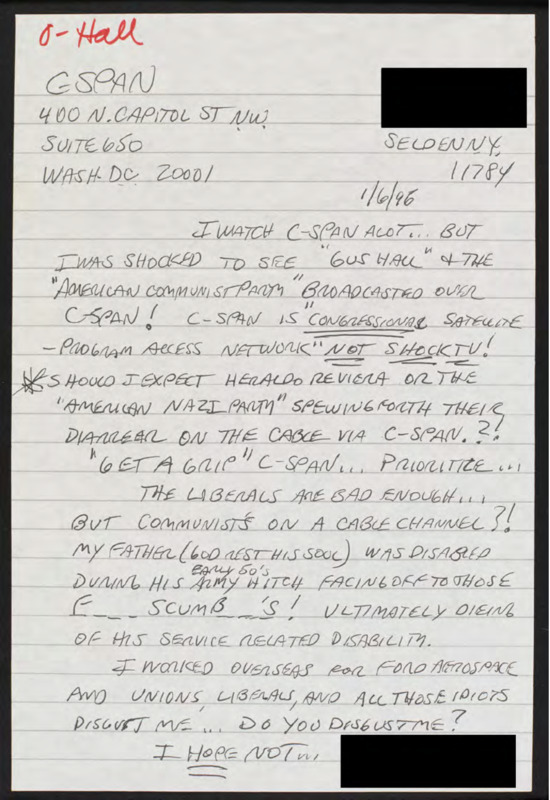 O-Hall
C-SPAN
400 N. CAPITOL ST NW.
SUITE 650
WASH. DC 20001
SELDEN NY,
11784
1/6/96
I WATCH C-SPAN ALOT... BUT
I WAS SHOCKED TO SEE "GUS HALL" & THE
"AMERICAN COMMUNIST PARTY" BROADCASTED OVER
C-SPAN! C-SPAN IS "CONGRESSIONAL SATELLITE
-PROGRAM ACCESS NETWORK" NOT SHOCK TV!
*SHOULD I EXPECT HERALDO REVIERA OR THE
"AMERICAN NAZI PARTY" SPEWING FORTH THEIR
DIARREAR ON THE CABLE VIA C-SPAN.?!
"GET A GRIP" C-SPAN... PRIORITIZE...
THE LIBERALS ARE BAD ENOUGH...
BUT COMMUNIST'S ON A CABLE CHANNEL?!
MY FATHER (GOD REST HIS SOUL) WAS DISABLED
EARLY 50'S
DURING HIS ARMY HITCH FACING OFF TO THOSE
F___ SCUMB__'S! ULTIMATELY DIEING
OF HIS SERVICE RELATED DISABILITY.
I WORKED OVERSEAS FOR FORD AEROSPACE
AND UNIONS, LIBERALS, AND ALL THOSE IDIOTS
DISGUST ME... DO YOU DISGUST ME?
I HOPE NOT...